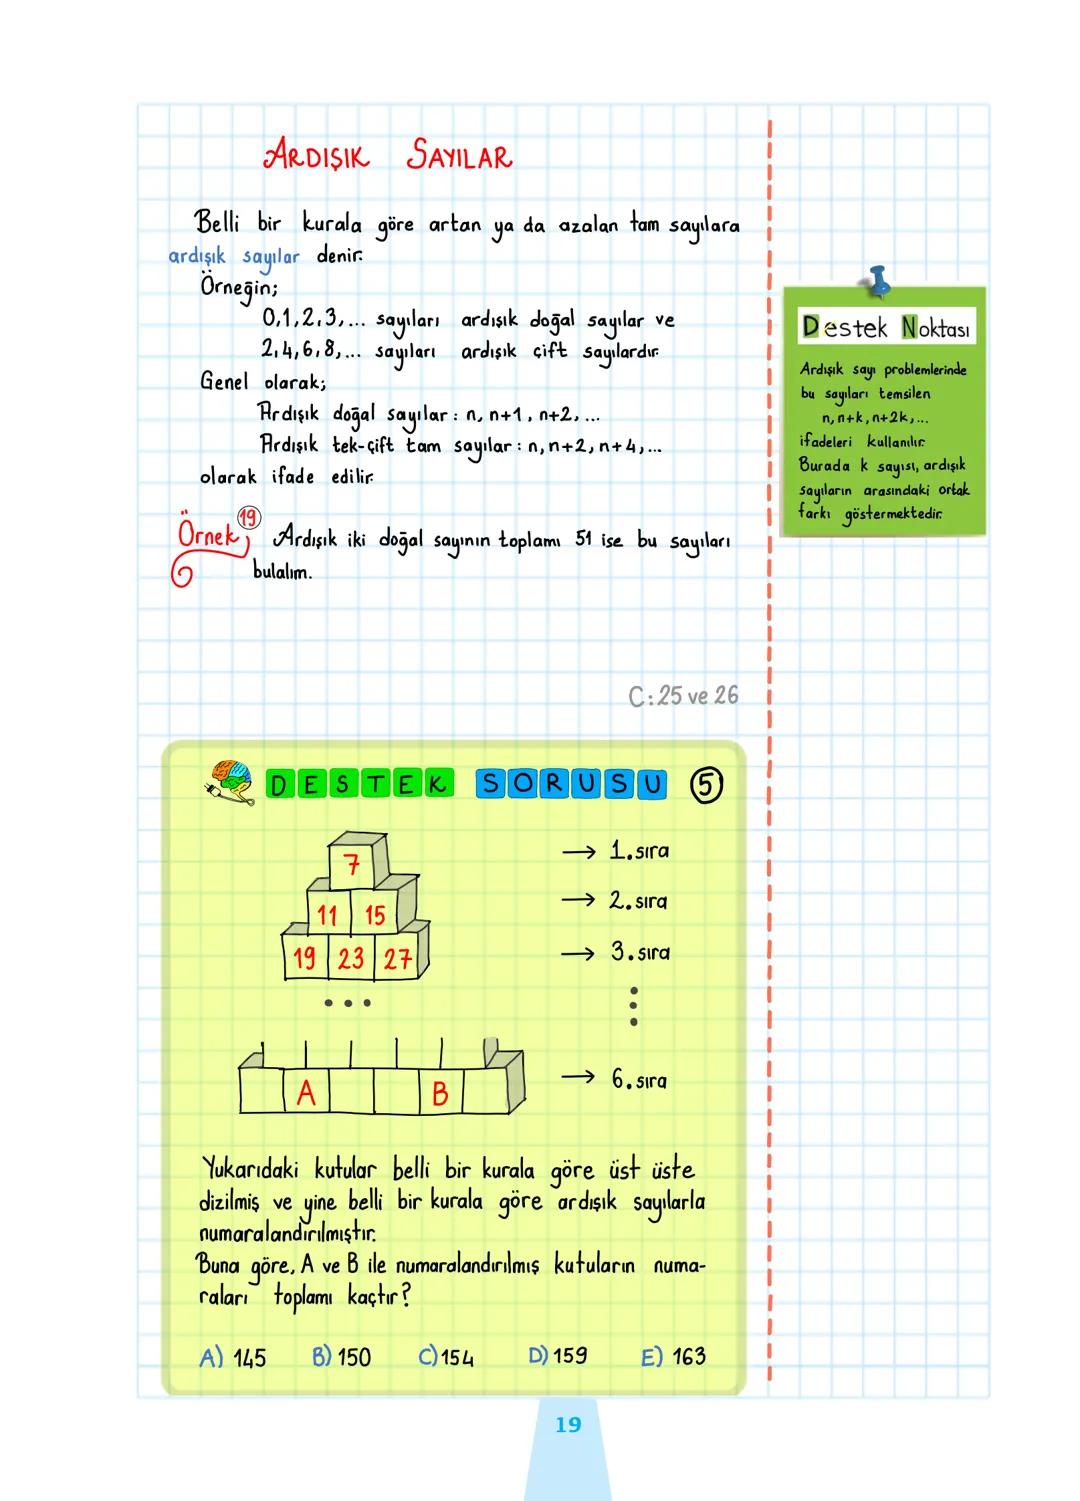 ARDIŞIK SAYILAR
Belli bir kurala göre artan ya da azalan tam sayılara
ardışık sayılar denir.
Örneğin;
0,1,2,3,... sayıları ardışık doğal sayılar ve
2,4,6,8,... sayıları ardışık çift sayılardır.
Genel olarak;
Ardışık doğal sayılar : n, n+1, n+2, ...
Ardışık tek-çift tam sayılar : n, n+2, n+4, ...
olarak ifade edilir.
Destek Noktası
Ardışık sayı problemlerinde
bu sayıları temsilen
n, n+k, n+2k, ...
ifadeleri kullanılır.
Burada k sayısı, ardışık
sayıların arasındaki ortak
farkı göstermektedir.
Örnek 19 Ardışık iki doğal sayının toplamı 51 ise bu sayıları
bulalım.
C: 25 ve 26
DESTEK SORUSU 5
7 → 1. sıra
11 15 → 2. sıra
19 23 27 → 3. sıra
...
A B → 6. sıra
Yukarıdaki kutular belli bir kurala göre üst üste
dizilmiş ve yine belli bir kurala göre ardışık sayılarla
numaralandırılmıştır.
Buna göre, A ve B ile numaralandırılmış kutuların numa-
raları toplamı kaçtır?
A) 145 B) 150 C) 154 D) 159 E) 163
19